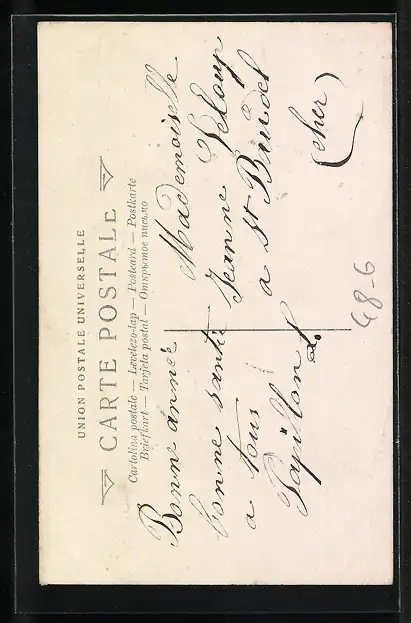 UNION POSTALE UNIVERSELLE
CARTE POSTALE
Cartolina postale — Levelezo-lap — Postcard — Postkarte
Briefkart — Tarjeta postal — Открытое письмо
Bonne année
bonne santée
a tous
Papillon L.
Mademoiselle
Jeanne Leloup
a St Baudel
(cher)
68-6